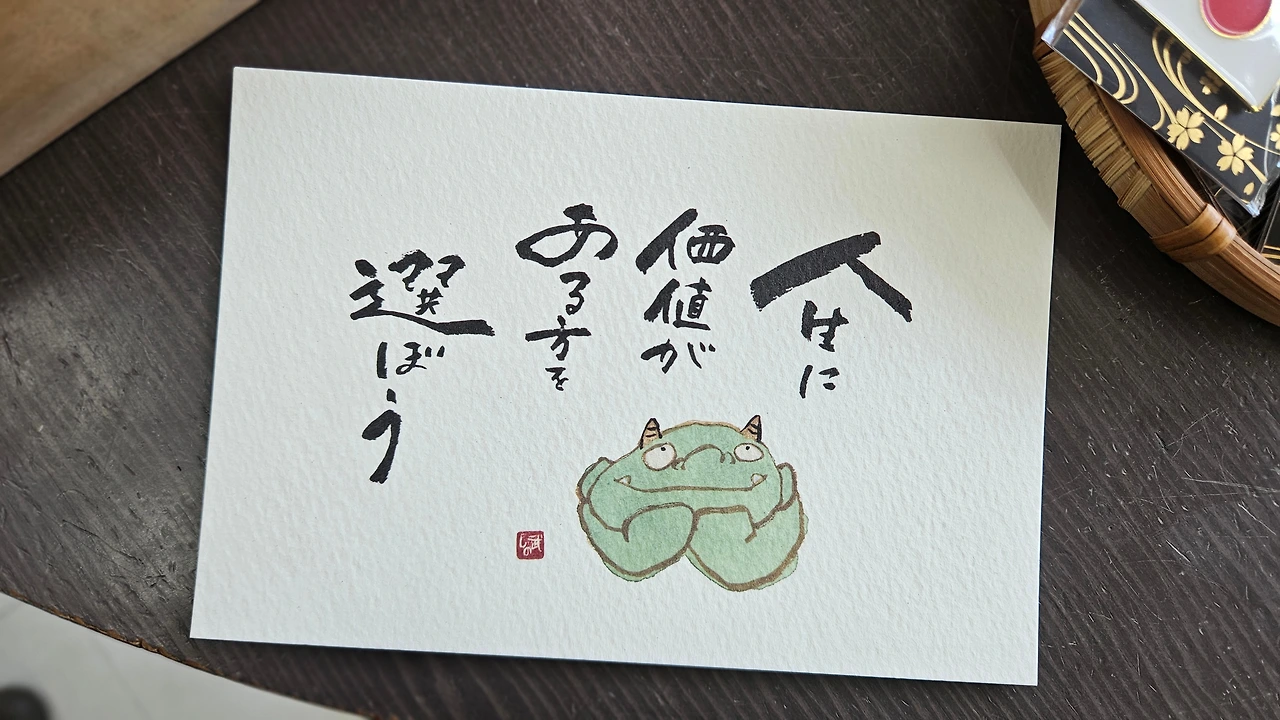 人生に
価値が
ある方を
選ぼう